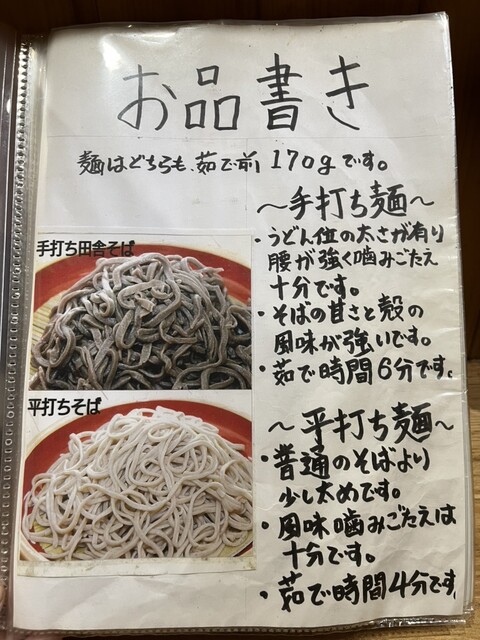 お品書き
麺はどちらも、茹で前170gです。
〜手打ち麺〜
・うどん位の太さが有り
腰が強く噛みごたえ
十分です。
・そばの甘さと殻の
風味が強いです。
・茹で時間6分です。
手打ち田舎そば
〜平打ち麺〜
・普通のそばより
少し太めです。
・風味噛みごたえは
十分です。
・茹で時間4分です
平打ちそば